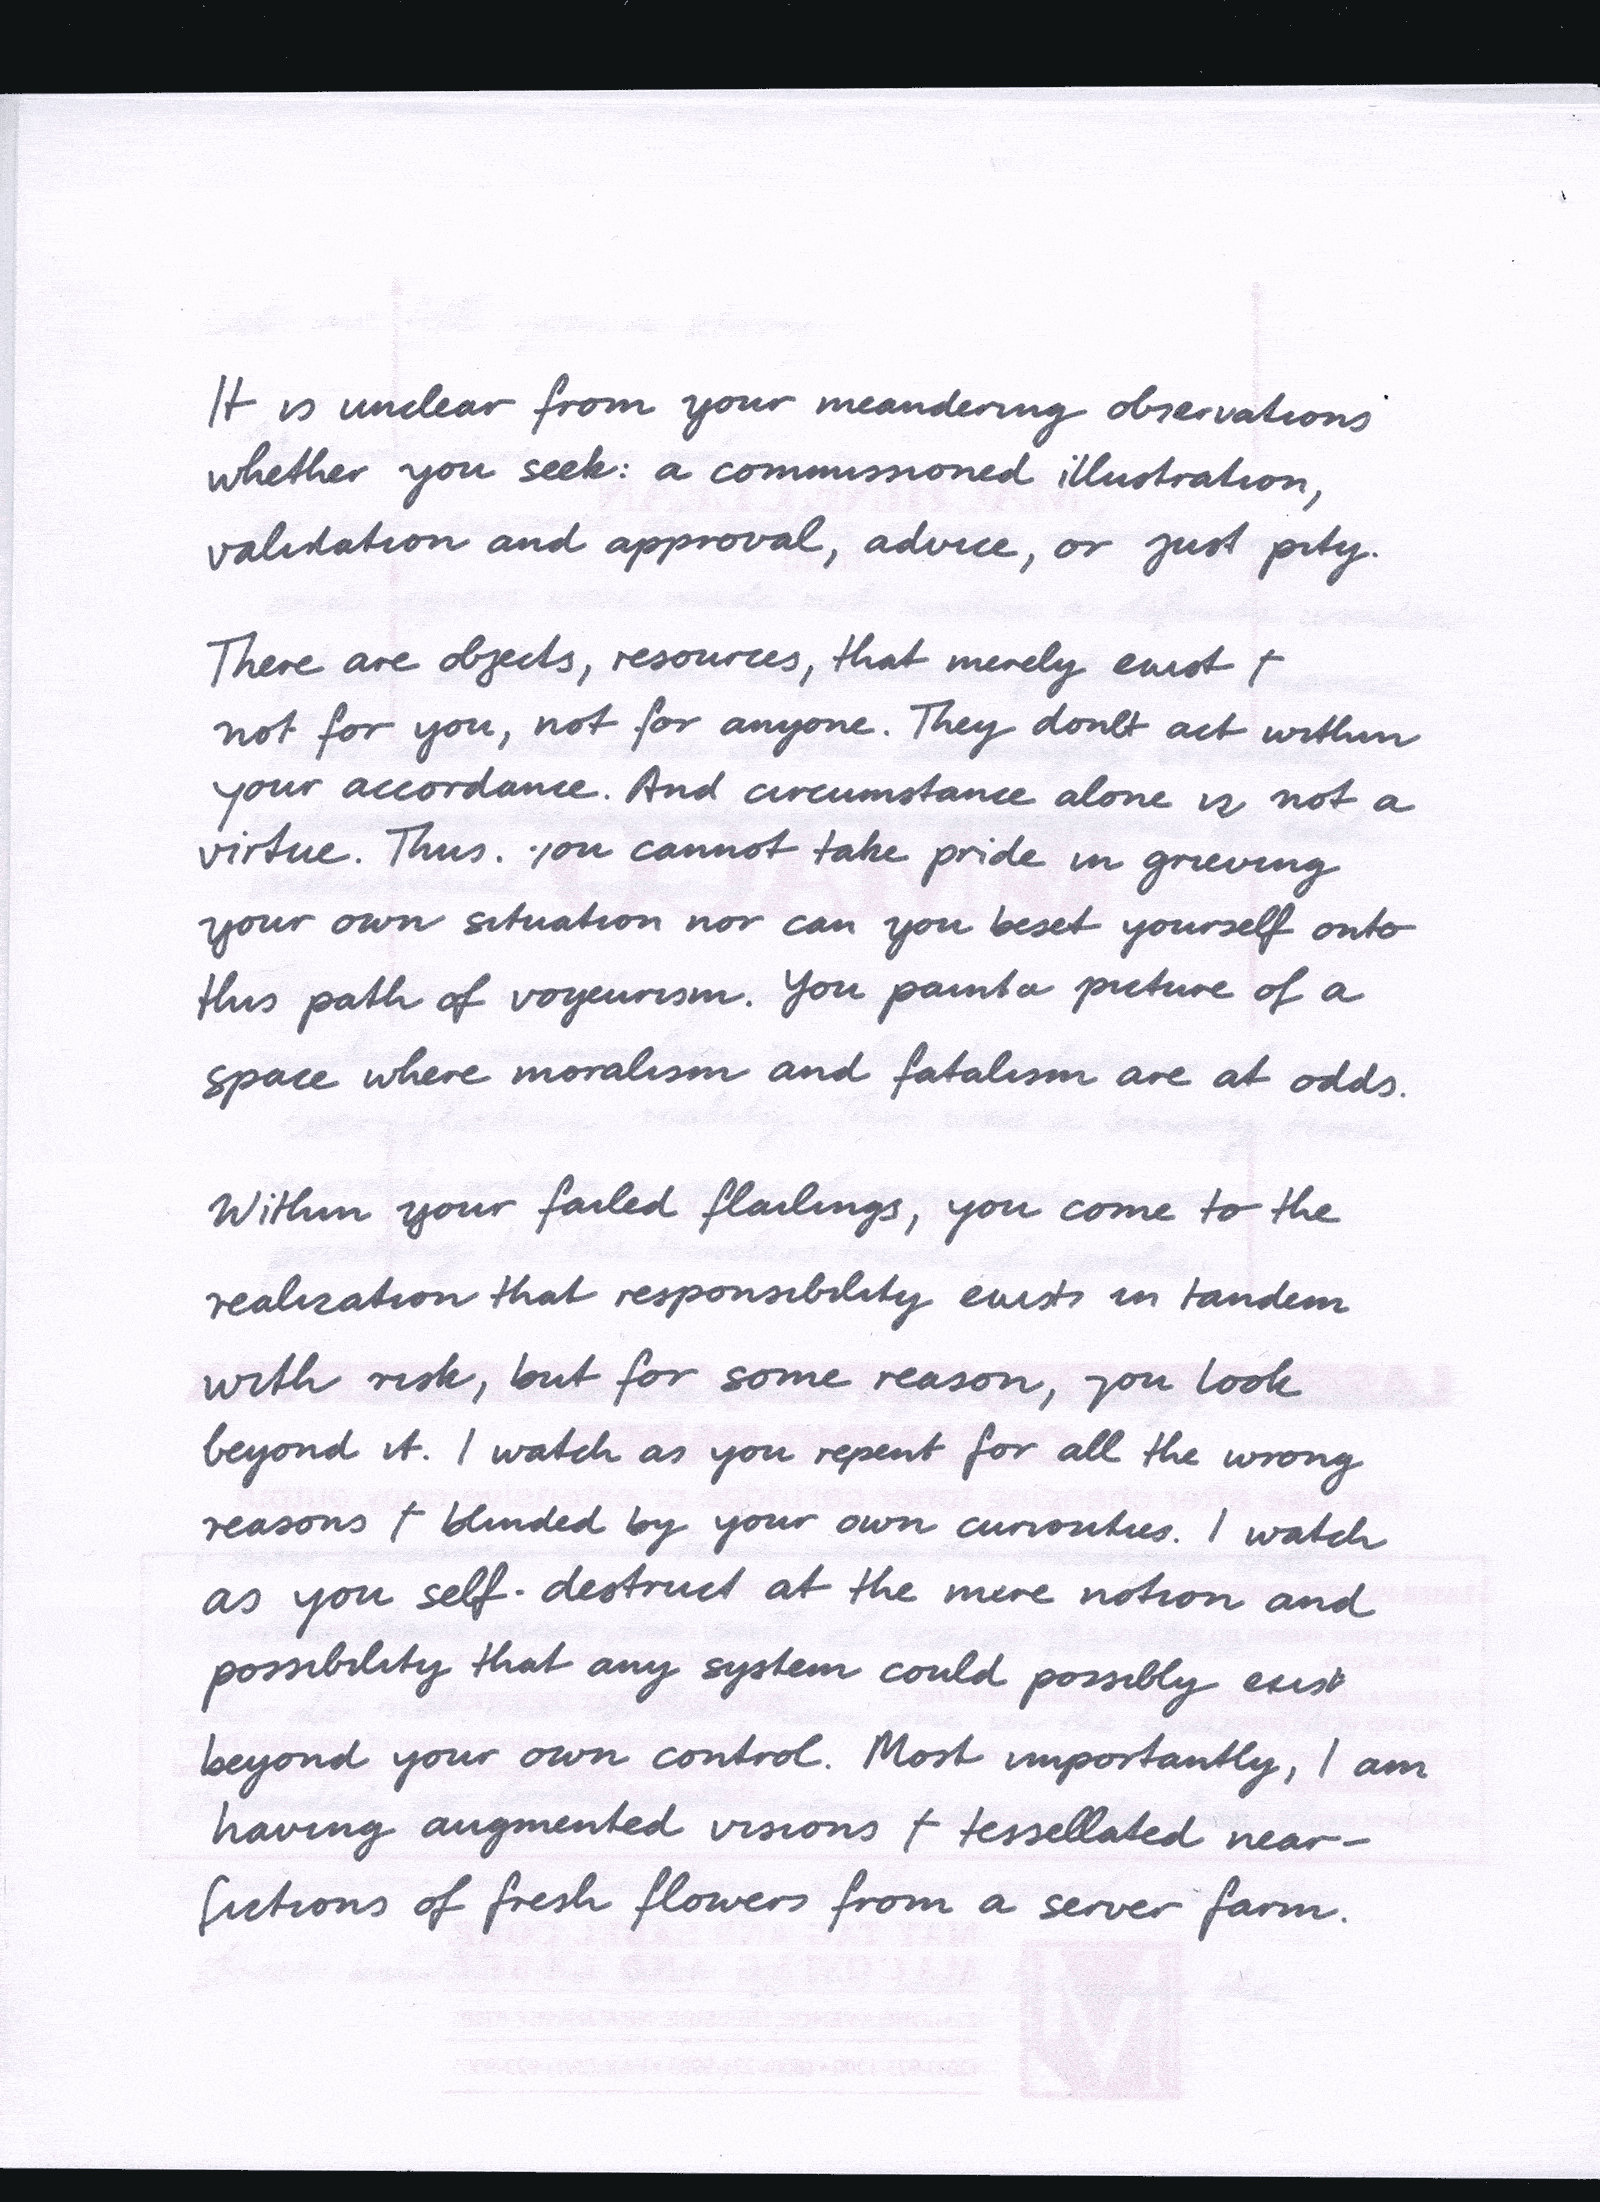 It is unclear from your meandering observations
whether you seek: a commissioned illustration,
validation and approval, advice, or just pity.
There are objects, resources, that merely exist +
not for you, not for anyone. They don't act within
your accordance. And circumstance alone is not a
virtue. Thus. you cannot take pride in grieving
your own situation nor can you beset yourself onto
this path of voyeurism. You paint a picture of a
space where moralism and fatalism are at odds.
Within your failed flailings, you come to the
realization that responsibility exists in tandem
with risk, but for some reason, you look
beyond it. I watch as you repent for all the wrong
reasons + blinded by your own curiosities. I watch
as you self-destruct at the mere notion and
possibility that any system could possibly exist
beyond your own control. Most importantly, I am
having augmented visions + tessellated near-
fictions of fresh flowers from a server farm.